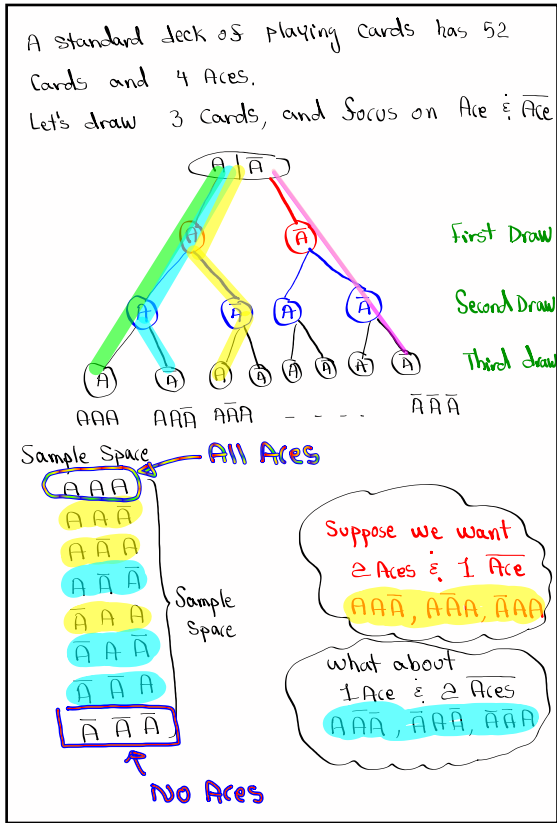 A standard deck of playing cards has 52
Cards and 4 Aces.
Let's draw 3 Cards, and focus on Ace & A̅c̅e̅
A | A̅
A A̅ First Draw
A A̅ A A̅ Second Draw
A A̅ A A̅ A A̅ A A̅ Third draw
AAA AAA̅ AA̅A - - - - - A̅A̅A̅
Sample Space
All Aces
A A A
A A A̅
A A̅ A
A A̅ A̅
A̅ A A
A̅ A A̅
A̅ A̅ A
A̅ A̅ A̅
Sample
Space
No Aces
Suppose we want
2 Aces & 1 A̅c̅e̅
AAA̅, AA̅A, A̅AA
what about
1 Ace & 2 A̅c̅e̅s̅
AA̅A̅, A̅AA̅, A̅A̅A